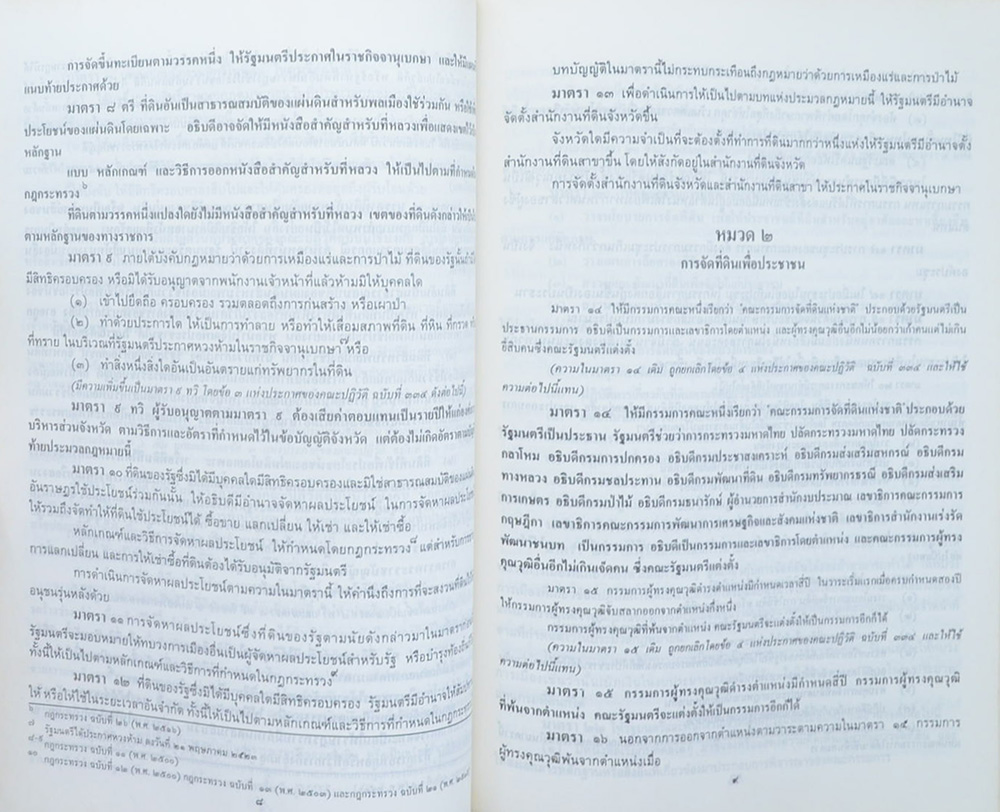 การจัดขึ้นทะเบียนตามวรรคหนึ่ง ให้รัฐมนตรีประกาศในราชกิจจานุเบกษา และให้มี
แนบท้ายประกาศด้วย
มาตรา ๘ ตรี ที่ดินอันเป็นสาธารณสมบัติของแผ่นดินสำหรับพลเมืองใช้ร่วมกัน หรือใช้เพื่อ
ประโยชน์ของแผ่นดินโดยเฉพาะ อธิบดีอาจจัดให้มีหนังสือสำคัญสำหรับที่หลวงเพื่อแสดงเขตไว้เป็น
หลักฐาน
แบบ หลักเกณฑ์ และวิธีการออกหนังสือสำคัญสำหรับที่หลวง ให้เป็นไปตามที่กำหนด
กฎกระทรวง๖
ที่ดินตามวรรคหนึ่งแปลงใดยังไม่มีหนังสือสำคัญสำหรับที่หลวง เขตของที่ดินดังกล่าวให้เป็นไป
ตามหลักฐานของทางราชการ
มาตรา ๙ ภายใต้บังคับกฎหมายว่าด้วยการเหมืองแร่และการป่าไม้ ที่ดินของรัฐนั้นถ้ามิได้
มีสิทธิครอบครอง หรือมิได้รับอนุญาตจากพนักงานเจ้าหน้าที่แล้วห้ามมิให้บุคคลใด
(๑) เข้าไปยึดถือ ครอบครอง รวมตลอดถึงการก่นสร้าง หรือเผาป่า
(๒) ทำด้วยประการใด ให้เป็นการทำลาย หรือทำให้เสื่อมสภาพที่ดิน ที่หิน ที่กรวด
ที่ทราย ในบริเวณที่รัฐมนตรีประกาศหวงห้ามในราชกิจจานุเบกษา๗ หรือ
(๓) ทำสิ่งหนึ่งสิ่งใดอันเป็นอันตรายแก่ทรัพยากรในที่ดิน
(มีความเพิ่มขึ้นเป็นมาตรา ๙ ทวิ โดยข้อ ๓ แห่งประกาศของคณะปฏิวัติ ฉบับที่ ๓๓๔ ดังต่อไปนี้)
มาตรา ๙ ทวิ ผู้รับอนุญาตตามมาตรา ๙ ต้องเสียค่าตอบแทนเป็นรายปีให้แก่องค์การ
บริหารส่วนจังหวัด ตามวิธีการและอัตราที่กำหนดไว้ในข้อบัญญัติจังหวัด แต่ต้องไม่เกิดอัตราตามบัญชี
ท้ายประมวลกฎหมายนี้
มาตรา ๑๐ ที่ดินของรัฐซึ่งมิได้มีบุคคลใดมีสิทธิครอบครองและมิใช่สาธารณสมบัติของแผ่นดิน
อันราษฎรใช้ประโยชน์ร่วมกันนั้น ให้อธิบดีมีอำนาจจัดหาผลประโยชน์ ในการจัดหาผลประโยชน์
ให้รวมถึงจัดทำให้ที่ดินใช้ประโยชน์ได้ ซื้อขาย แลกเปลี่ยน ให้เช่า และให้เช่าซื้อ
หลักเกณฑ์และวิธีการจัดหาผลประโยชน์ ให้กำหนดโดยกฎกระทรวง๘ แต่สำหรับการขาย
การแลกเปลี่ยน และการให้เช่าซื้อที่ดินต้องได้รับอนุมัติจากรัฐมนตรี
การดำเนินการจัดหาผลประโยชน์ตามความในมาตรานี้ ให้คำนึงถึงการที่จะสงวนที่ดินไว้ให้
อนุชนรุ่นหลังด้วย
มาตรา ๑๑ การจัดหาผลประโยชน์ซึ่งที่ดินของรัฐตามนัยดังกล่าวมาในมาตราก่อน
รัฐมนตรีจะมอบหมายให้ทบวงการเมืองอื่นเป็นผู้จัดหาผลประโยชน์สำหรับรัฐ หรือบำรุงท้องถิ่น
ทั้งนี้ให้เป็นไปตามหลักเกณฑ์และวิธีการที่กำหนดในกฎกระทรวง๙
มาตรา ๑๒ ที่ดินของรัฐซึ่งมิได้มีบุคคลใดมีสิทธิครอบครอง รัฐมนตรีมีอำนาจให้สัมปทาน
ให้ หรือให้ใช้ในระยะเวลาอันจำกัด ทั้งนี้ให้เป็นไปตามหลักเกณฑ์และวิธีการที่กำหนดในกฎกระทรวง
๖ กฎกระทรวง ฉบับที่ ๒๖ (พ.ศ. ๒๕๑๖)
๗ รัฐมนตรีได้ประกาศหวงห้าม ลงวันที่ ๒๑ พฤษภาคม ๒๕๒๓
๘-๙ กฎกระทรวง ฉบับที่ ๑๑ (พ.ศ. ๒๕๐๐)
๑๐ กฎกระทรวง ฉบับที่ ๑๒ (พ.ศ. ๒๕๐๐) กฎกระทรวง ฉบับที่ ๑๓ (พ.ศ. ๒๕๐๓) และกฎกระทรวง ฉบับที่ ๒๑ (พ.ศ.
๘
บทบัญญัติในมาตรานี้ไม่กระทบกระเทือนถึงกฎหมายว่าด้วยการเหมืองแร่และการป่าไม้
มาตรา ๑๓ เพื่อดำเนินการให้เป็นไปตามบทแห่งประมวลกฎหมายนี้ ให้รัฐมนตรีมีอำนาจ
จัดตั้งสำนักงานที่ดินจังหวัดขึ้น
จังหวัดใดมีความจำเป็นที่จะต้องตั้งที่ทำการที่ดินมากกว่าหนึ่งแห่งให้รัฐมนตรีมีอำนาจตั้ง
สำนักงานที่ดินสาขาขึ้น โดยให้สังกัดอยู่ในสำนักงานที่ดินจังหวัด
การจัดตั้งสำนักงานที่ดินจังหวัดและสำนักงานที่ดินสาขา ให้ประกาศในราชกิจจานุเบกษา
หมวด ๒
การจัดที่ดินเพื่อประชาชน
มาตรา ๑๔ ให้มีกรรมการคณะหนึ่งเรียกว่า "คณะกรรมการจัดที่ดินแห่งชาติ" ประกอบด้วยรัฐมนตรีเป็น
ประธานกรรมการ อธิบดีเป็นกรรมการและเลขาธิการโดยตำแหน่ง และผู้ทรงคุณวุฒิอื่นอีกไม่น้อยกว่าเก้าคนแต่ไม่เกิน
ยี่สิบคนซึ่งคณะรัฐมนตรีแต่งตั้ง
(ความในมาตรา ๑๔ เดิม ถูกยกเลิกโดยข้อ ๔ แห่งประกาศของคณะปฏิวัติ ฉบับที่ ๓๓๔ และให้ใช้
ความต่อไปนี้แทน)
มาตรา ๑๔ ให้มีกรรมการคณะหนึ่งเรียกว่า "คณะกรรมการจัดที่ดินแห่งชาติ" ประกอบด้วย
รัฐมนตรีเป็นประธาน รัฐมนตรีช่วยว่าการกระทรวงมหาดไทย ปลัดกระทรวงมหาดไทย ปลัดกระทรวง
กลาโหม อธิบดีกรมการปกครอง อธิบดีกรมประชาสงเคราะห์ อธิบดีกรมส่งเสริมสหกรณ์ อธิบดีกรม
ทางหลวง อธิบดีกรมชลประทาน อธิบดีกรมพัฒนาที่ดิน อธิบดีกรมทรัพยากรธรณี อธิบดีกรมส่งเสริม
การเกษตร อธิบดีกรมป่าไม้ อธิบดีกรมธนารักษ์ ผู้อำนวยการสำนักงบประมาณ เลขาธิการคณะกรรมการ
กฤษฎีกา เลขาธิการคณะกรรมการพัฒนาการเศรษฐกิจและสังคมแห่งชาติ เลขาธิการสำนักงานเร่งรัด
พัฒนาชนบท เป็นกรรมการ อธิบดีเป็นกรรมการและเลขาธิการโดยตำแหน่ง และคณะกรรมการผู้ทรง
คุณวุฒิอื่นอีกไม่เกินเจ็ดคน ซึ่งคณะรัฐมนตรีแต่งตั้ง
มาตรา ๑๕ กรรมการผู้ทรงคุณวุฒิดำรงตำแหน่งมีกำหนดเวลาสี่ปี ในวาระเริ่มแรกเมื่อครบกำหนดสองปี
ให้กรรมการผู้ทรงคุณวุฒิจับสลากออกจากตำแหน่งกึ่งหนึ่ง
กรรมการผู้ทรงคุณวุฒิที่พ้นจากตำแหน่ง คณะรัฐมนตรีจะแต่งตั้งให้เป็นกรรมการอีกก็ได้
(ความในมาตรา ๑๕ เดิม ถูกยกเลิกโดยข้อ ๔ แห่งประกาศของคณะปฏิวัติ ฉบับที่ ๓๓๔ และให้ใช้
ความต่อไปนี้แทน)
มาตรา ๑๕ กรรมการผู้ทรงคุณวุฒิดำรงตำแหน่งมีกำหนดสี่ปี กรรมการผู้ทรงคุณวุฒิ
ที่พ้นจากตำแหน่ง คณะรัฐมนตรีจะแต่งตั้งให้เป็นกรรมการอีกก็ได้
มาตรา ๑๖ นอกจากการออกจากตำแหน่งตามวาระตามความในมาตรา ๑๕ กรรมการ
ผู้ทรงคุณวุฒิพ้นจากตำแหน่งเมื่อ
๙